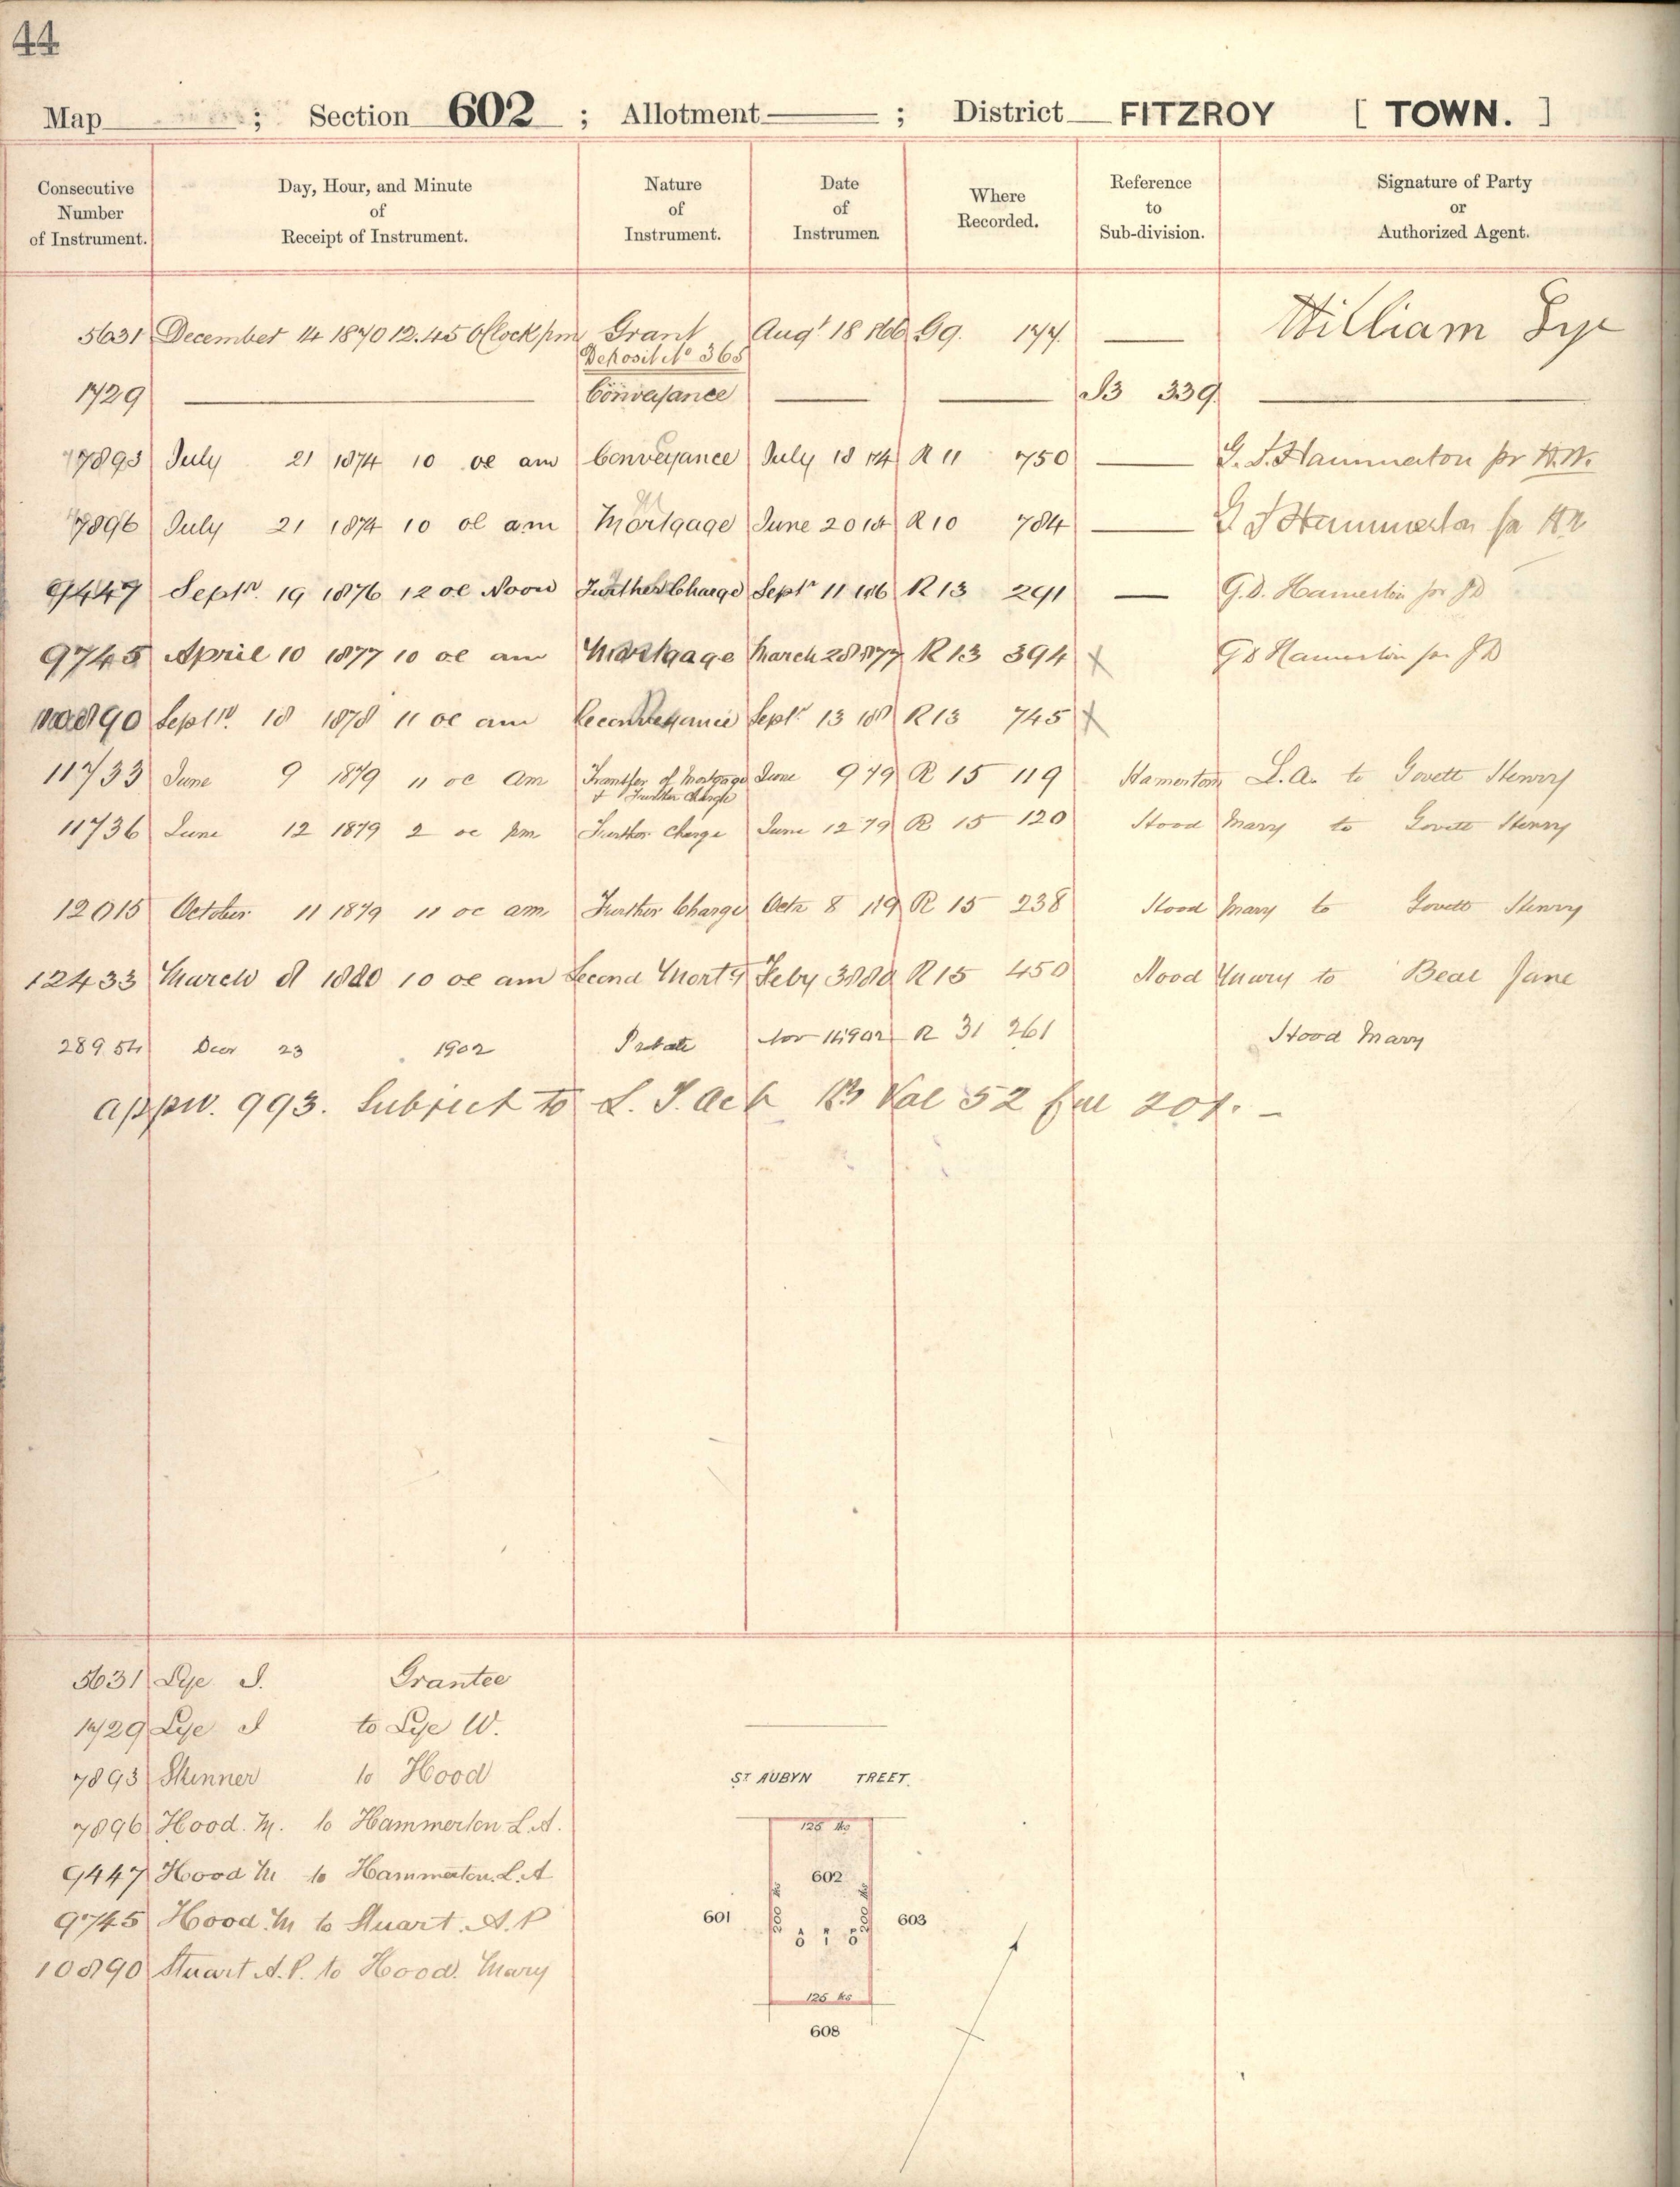 44
Map ; Section 602 ; Allotment ; District FITZROY [ TOWN. ]
Consecutive Number of Instrument.
Day, Hour, and Minute of Receipt of Instrument.
Nature of Instrument.
Date of Instrumen
Where Recorded.
Reference to Sub-division.
Signature of Party or Authorized Agent.
5631 December 14 1870 12.45 OClock pm Grant Augt 18 1866 G9. 177. William Lye
Deposit No 365
1729 Conveyance B 339
7893 July 21 1874 10 oc am Conveyance July 18 74 R 11 750
7896 July 21 1874 10 oc am Mortgage June 20 R 10 784
9447 Septr. 19 1876 12 oc Noon Further Charge Septr 11 R 13 291
9745 April 10 1877 10 oc am Mortgage March 28 1877 R 13 394 X
10890 Septr. 18 1878 11 oc am Reconveyance Septr 13 R 13 745 X
11733 June 9 1879 11 oc am Transfer of Mortgage June 9 79 R 15 119 Hamerton L.A. to Govett Henry
& Further Charge
11736 June 12 1879 2 oc pm Further Charge June 12 79 R 15 120 Hood Mary to Govett Henry
12015 October 11 1879 11 oc am Further Charge Octr 8 R 15 238 Hood Mary to Govett Henry
12433 March 8 1880 10 oc am Second Mortg Feby R 15 450 Hood Mary to Beal Jane
28954 Decr 23 1902 Probate Nov 1902 R 31 261 Hood Mary
appn. 993. Subject to L. T. Act Vol 52 fol
5631 Lye J. Grantee
1729 Lye J to Lye W.
7893 Skinner to Hood
7896 Hood. M. to Hammerton L.A.
9447 Hood M to Hammerton. L. A
9745 Hood. M to Stuart. A. P
10890 Stuart A. P. to Hood. Mary
ST AUBYN TREET.
125 lks
602
601
603
0 1 0
125 lks
608